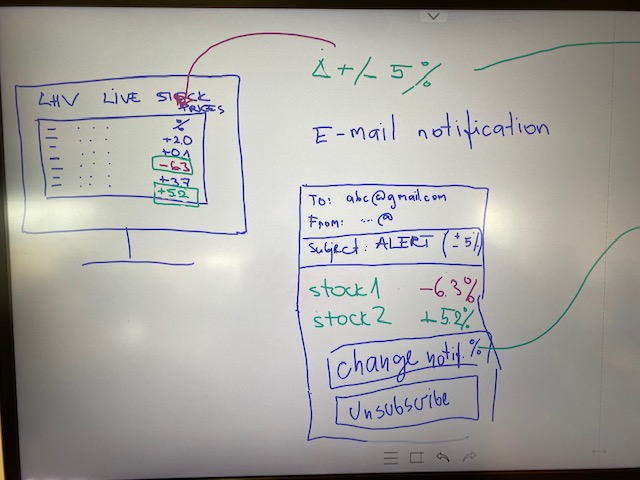 Δ +/- 5%
LHV LIVE STOCK PRICES
%
+2.0
+0.1
-6.3
+3.7
+5.2
E-mail notification
To: abc@gmail.com
From: ...@
Subject: ALERT (± 5%)
stock1 -6.3%
stock2 +5.2%
Change notif. %
Unsubscribe